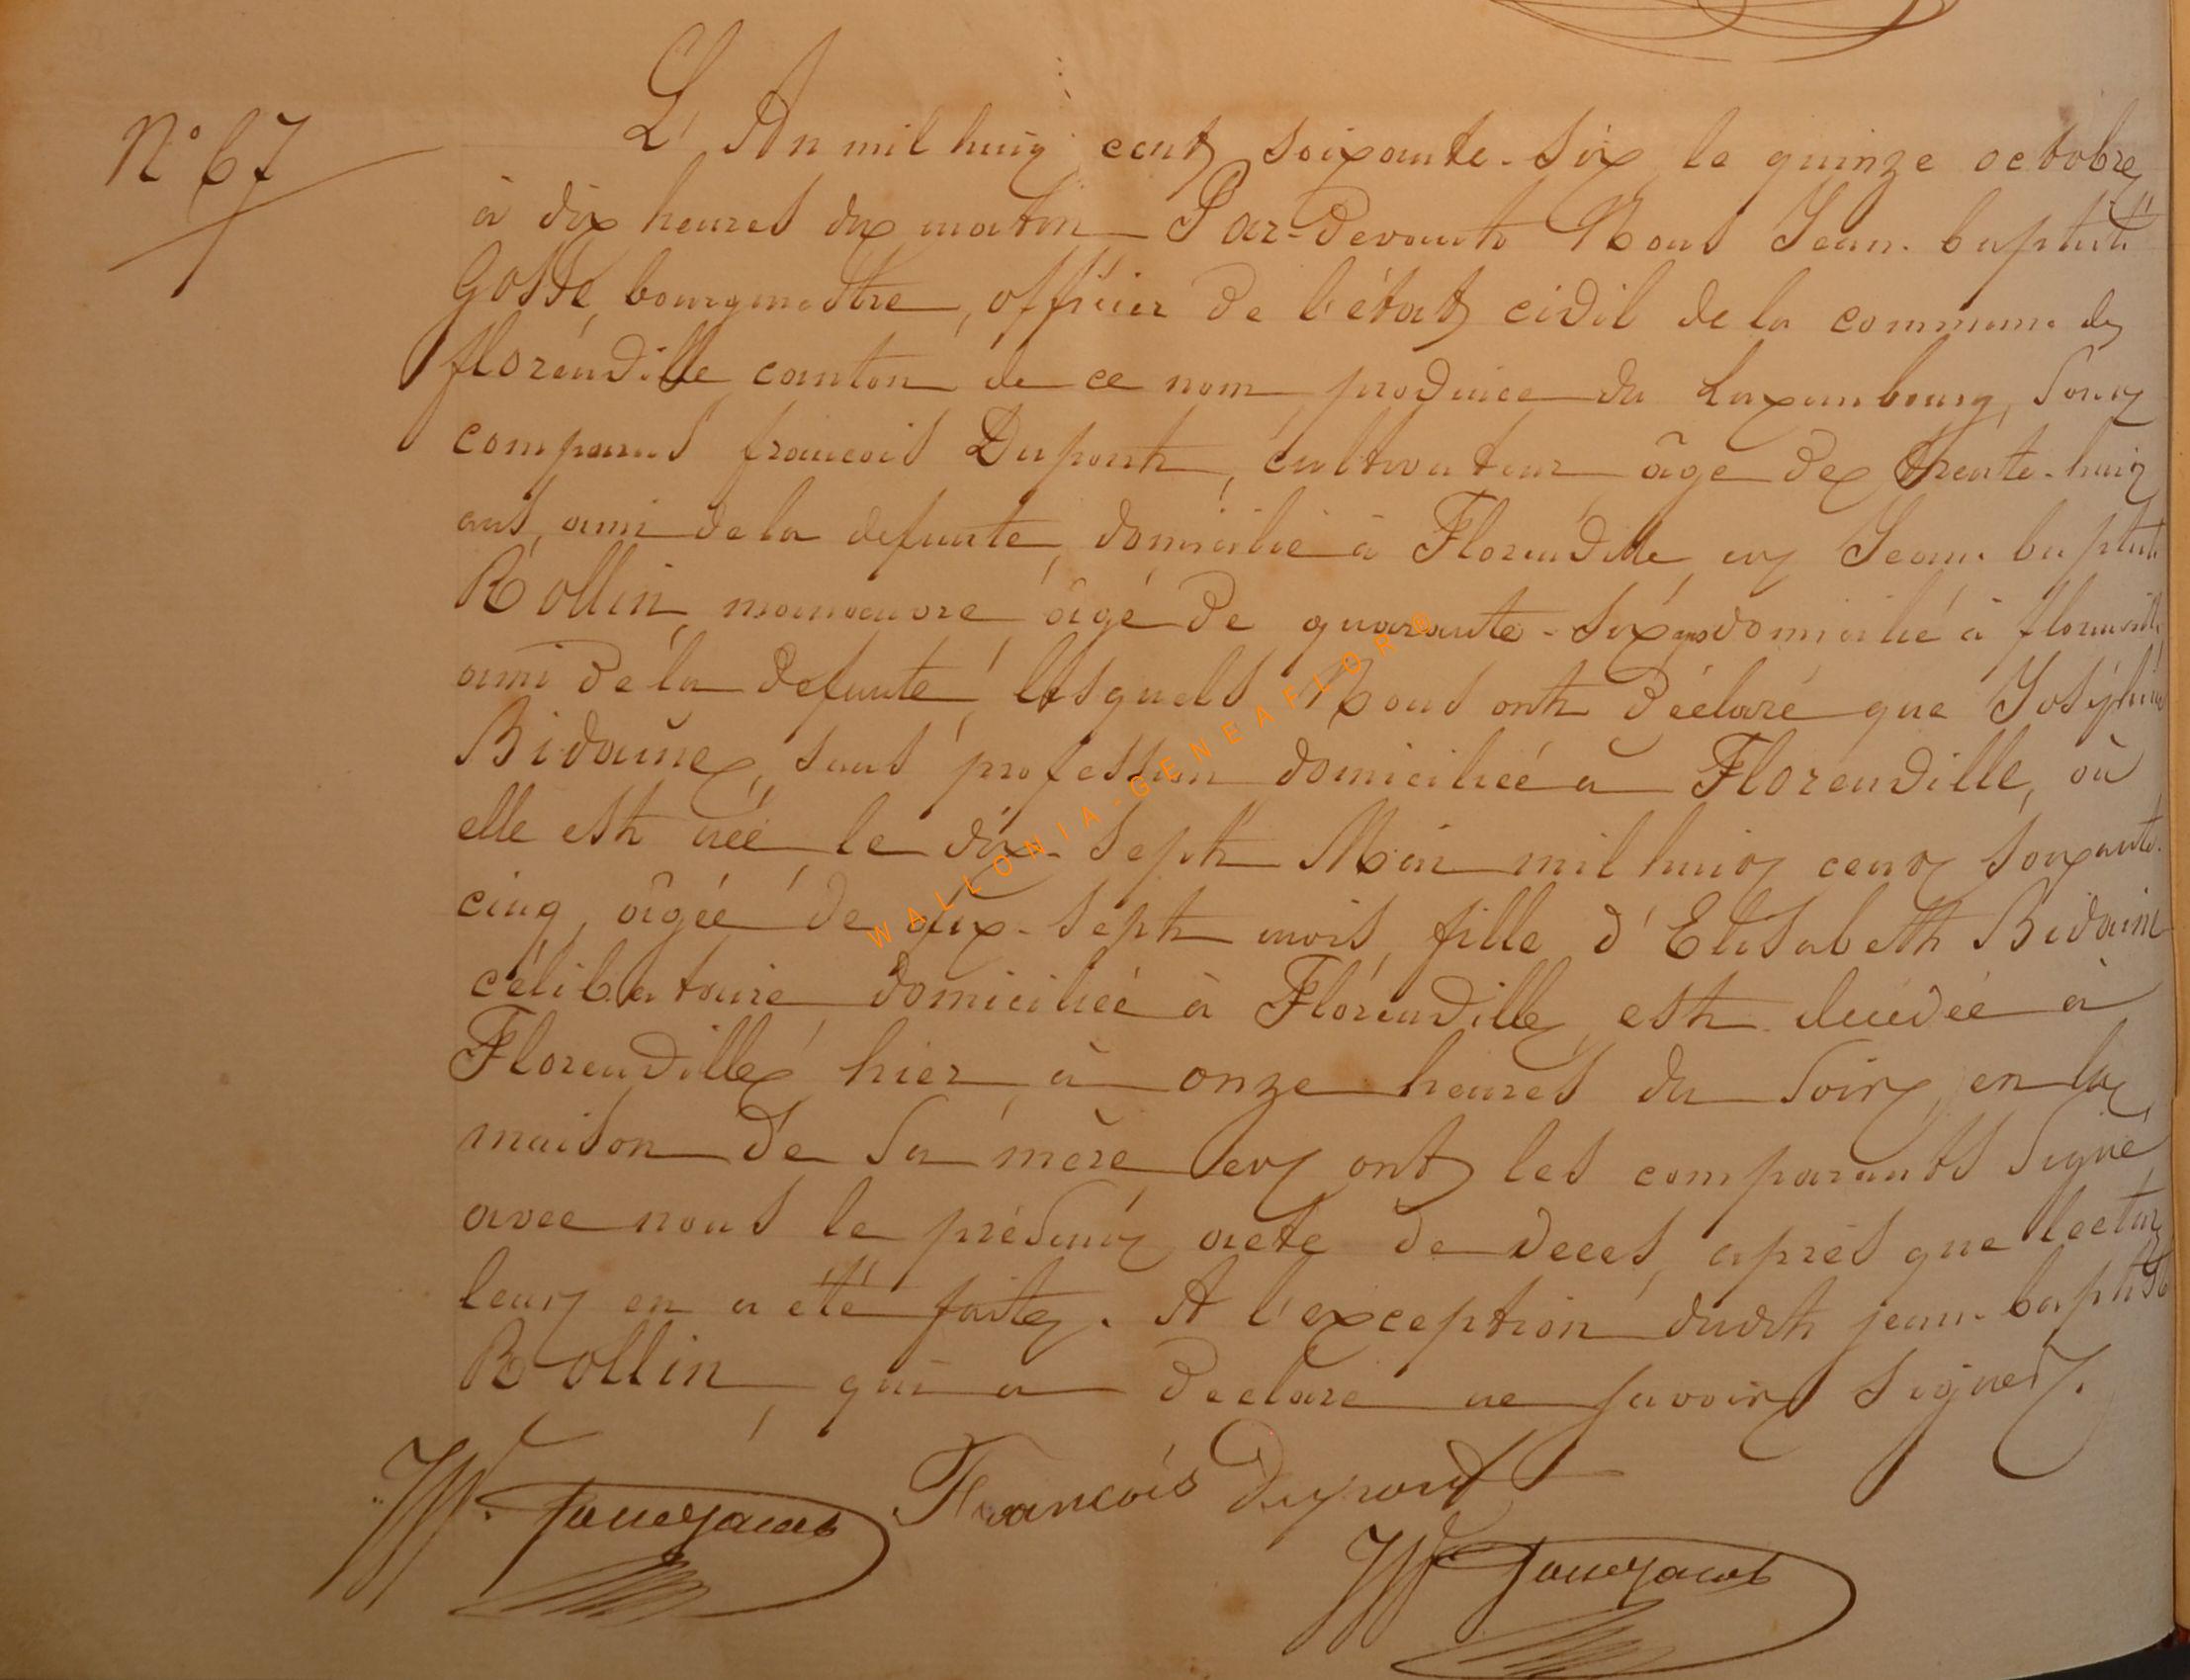 N° 67
L'An mil huit cent soixante-six, le quinze octobre
à dix heures du matin Par-devant Nous Jean-baptiste
Gosse, bourgmestre, officier de l'état civil de la commune de
florenville canton de ce nom province du Luxembourg, sont
comparus francois Dupont, cultivateur âgé de trente-huit
ans, ami de la defunte, domicilié à Florenville et Jean-baptiste
Rollin, manoeuvre, âgé de quarante-six ans domicilié à florenville
ami de la defunte, lesquels Nous ont déclaré que Joséphine
Bidaine, sans profession domiciliée à Florenville, où
elle est née le dix-sept Mai mil huit cent soixante-
cinq, âgée de dix-sept mois, fille d'Elisabeth Bidaine
célibataire domiciliée à Florenville, est decédée à
Florenville hier à onze heures du soir, en la
maison de sa mère, et ont les comparants signé
avec nous le présent acte de decès, après que lecture
leur en a été faite. A l'exception dudit jean-baptiste
Rollin, qui a declaré ne savoir signer.
François Dupont
WALLONIA-GENEAFLOR©